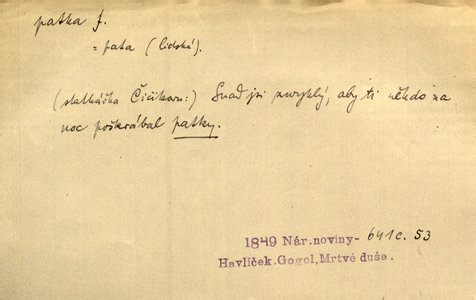 patka f.
= pata (lidská).
(statkářka Čičikovu:) Snad jsi zvyklý, aby ti někdo na
noc poškrábal patky.
1849 Nár.noviny- 641 c. 53
Havlíček.Gogol,Mrtvé duše.